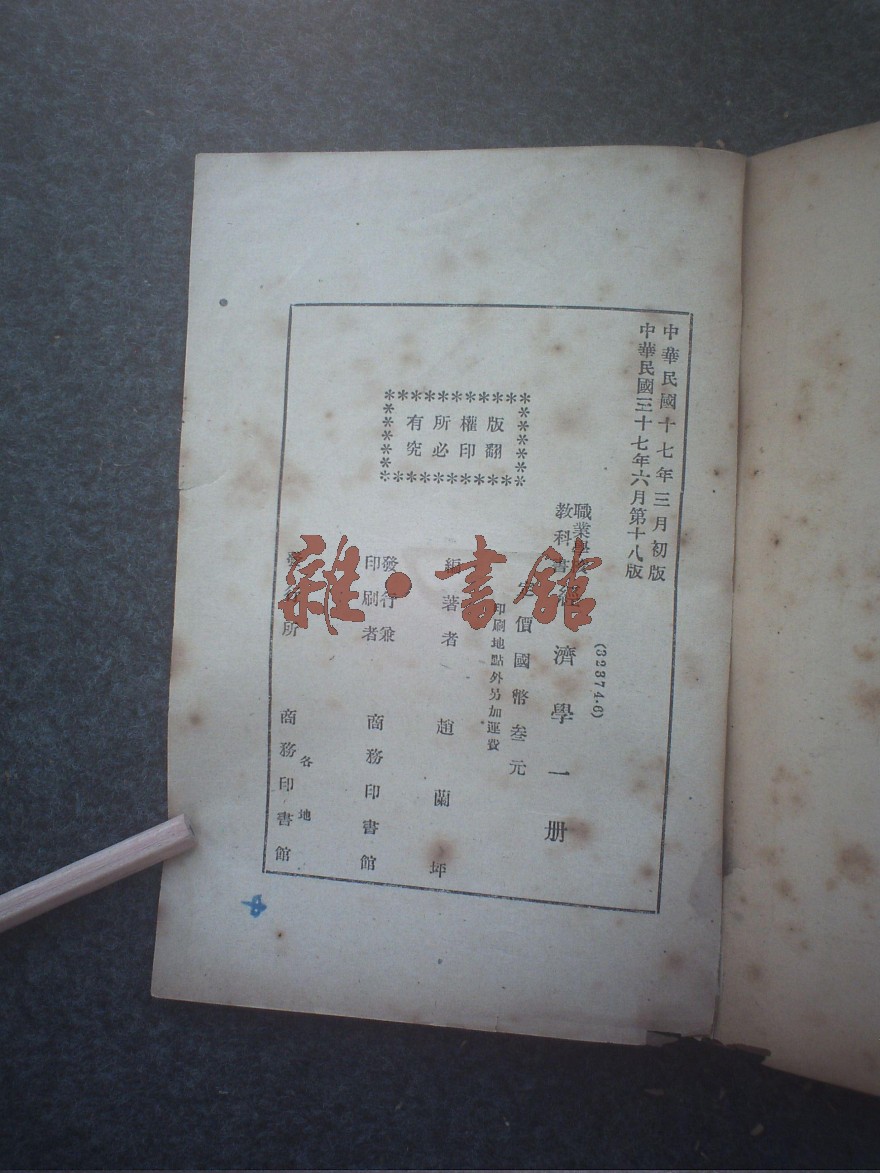 中華民國十七年三月初版
中華民國三十七年六月第十八版
(32374.6)
職業學校教科書
經濟學一册
定價國幣叁元
印刷地點外另加運費
版權所有
翻印必究
編著者 趙蘭坪
發行兼印刷者 商務印書館
發行所 各地 商務印書館
雜·書館